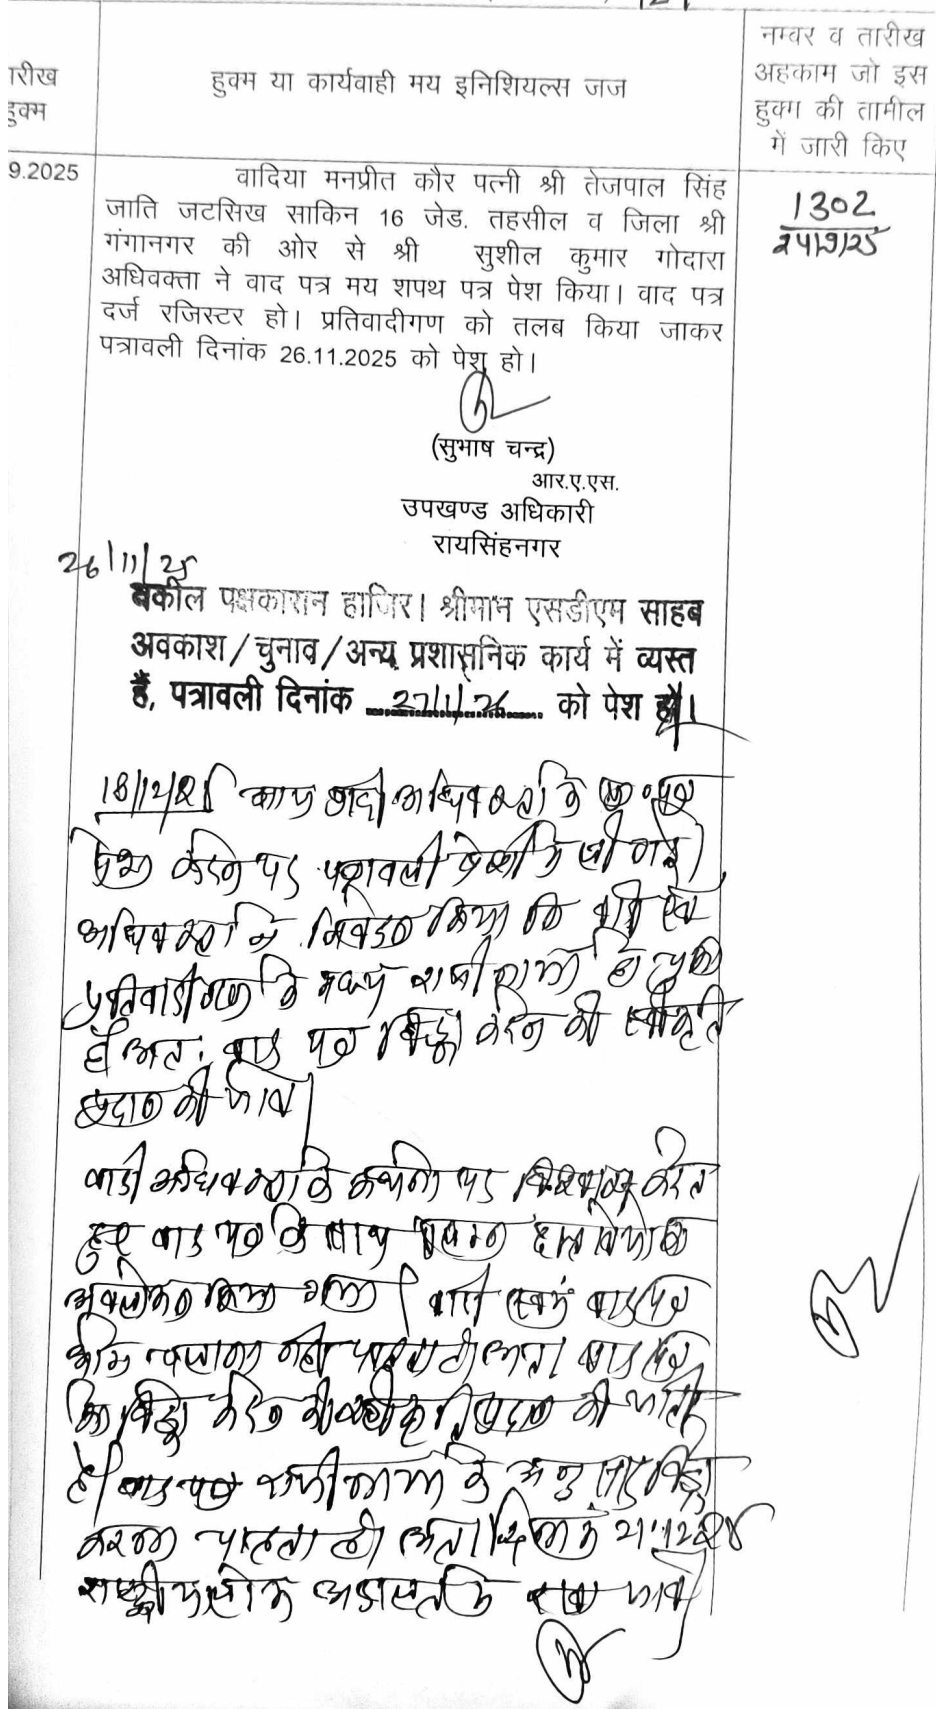 नम्वर व तारीख
अहकाम जो इस
हुक्म की तामील
में जारी किए
रीख
हुक्म
हुक्म या कार्यवाही मय इनिशियल्स जज
9.2025
वादिया मनप्रीत कौर पत्नी श्री तेजपाल सिंह
जाति जटसिख साकिन 16 जेड. तहसील व जिला श्री
गंगानगर की ओर से श्री सुशील कुमार गोदारा
अधिवक्ता ने वाद पत्र मय शपथ पत्र पेश किया। वाद पत्र
दर्ज रजिस्टर हो। प्रतिवादीगण को तलब किया जाकर
पत्रावली दिनांक 26.11.2025 को पेश हो।
1302
24/9/25
(सुभाष चन्द्र)
आर.ए.एस.
उपखण्ड अधिकारी
रायसिंहनगर
26/11/25
वकील पक्षकारान हाजिर। श्रीमान एसडीएम साहब
अवकाश/चुनाव/अन्य प्रशासनिक कार्य में व्यस्त
हैं, पत्रावली दिनांक 27/1/26 को पेश हो।
18/12/25 वादी अधिवक्ता के
पेश करने पर पत्रावली पेशी में ली गई।
अधिवक्ता ने निवेदन किया कि वादी एवं
प्रतिवादीगण के मध्य राजीनामा हो चुका
है अतः वाद पत्र विड्रो करने की स्वीकृति
प्रदान की जावे।
वादी अधिवक्ता के कथनों पर करते
हुए वाद पत्र के साथ संलग्न दस्तावेजों का
अवलोकन किया गया। वादी स्वयं वाद पत्र
चलाना नहीं चाहता है। अतः वाद पत्र
को विड्रो करने की स्वीकृति प्रदान की जाती
है। वाद पत्र राजीनामा के अनुसार विड्रो
करना चाहता है। अतः दिनांक 21.12.25
राष्ट्रीय लोक अदालत में रखा जावे।